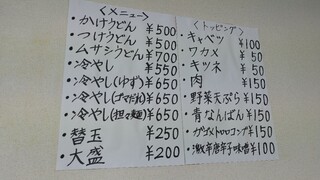 <メニュー>
・かけうどん ¥500
・つけうどん ¥500
・ムサシうどん ¥700
・冷やし ¥550
・冷やし(ゆず) ¥650
・冷やし(ゴマだれ) ¥650
・冷やし(担々麺) ¥650
・替玉 ¥250
・大盛 ¥200
<トッピング>
・キャベツ ¥100
・ワカメ ¥50
・キツネ ¥50
・肉 ¥150
・野菜天ぷら ¥150
・青なんばん ¥150
・ガゴメトロロコンブ ¥150
・激辛唐辛子味噌 ¥100